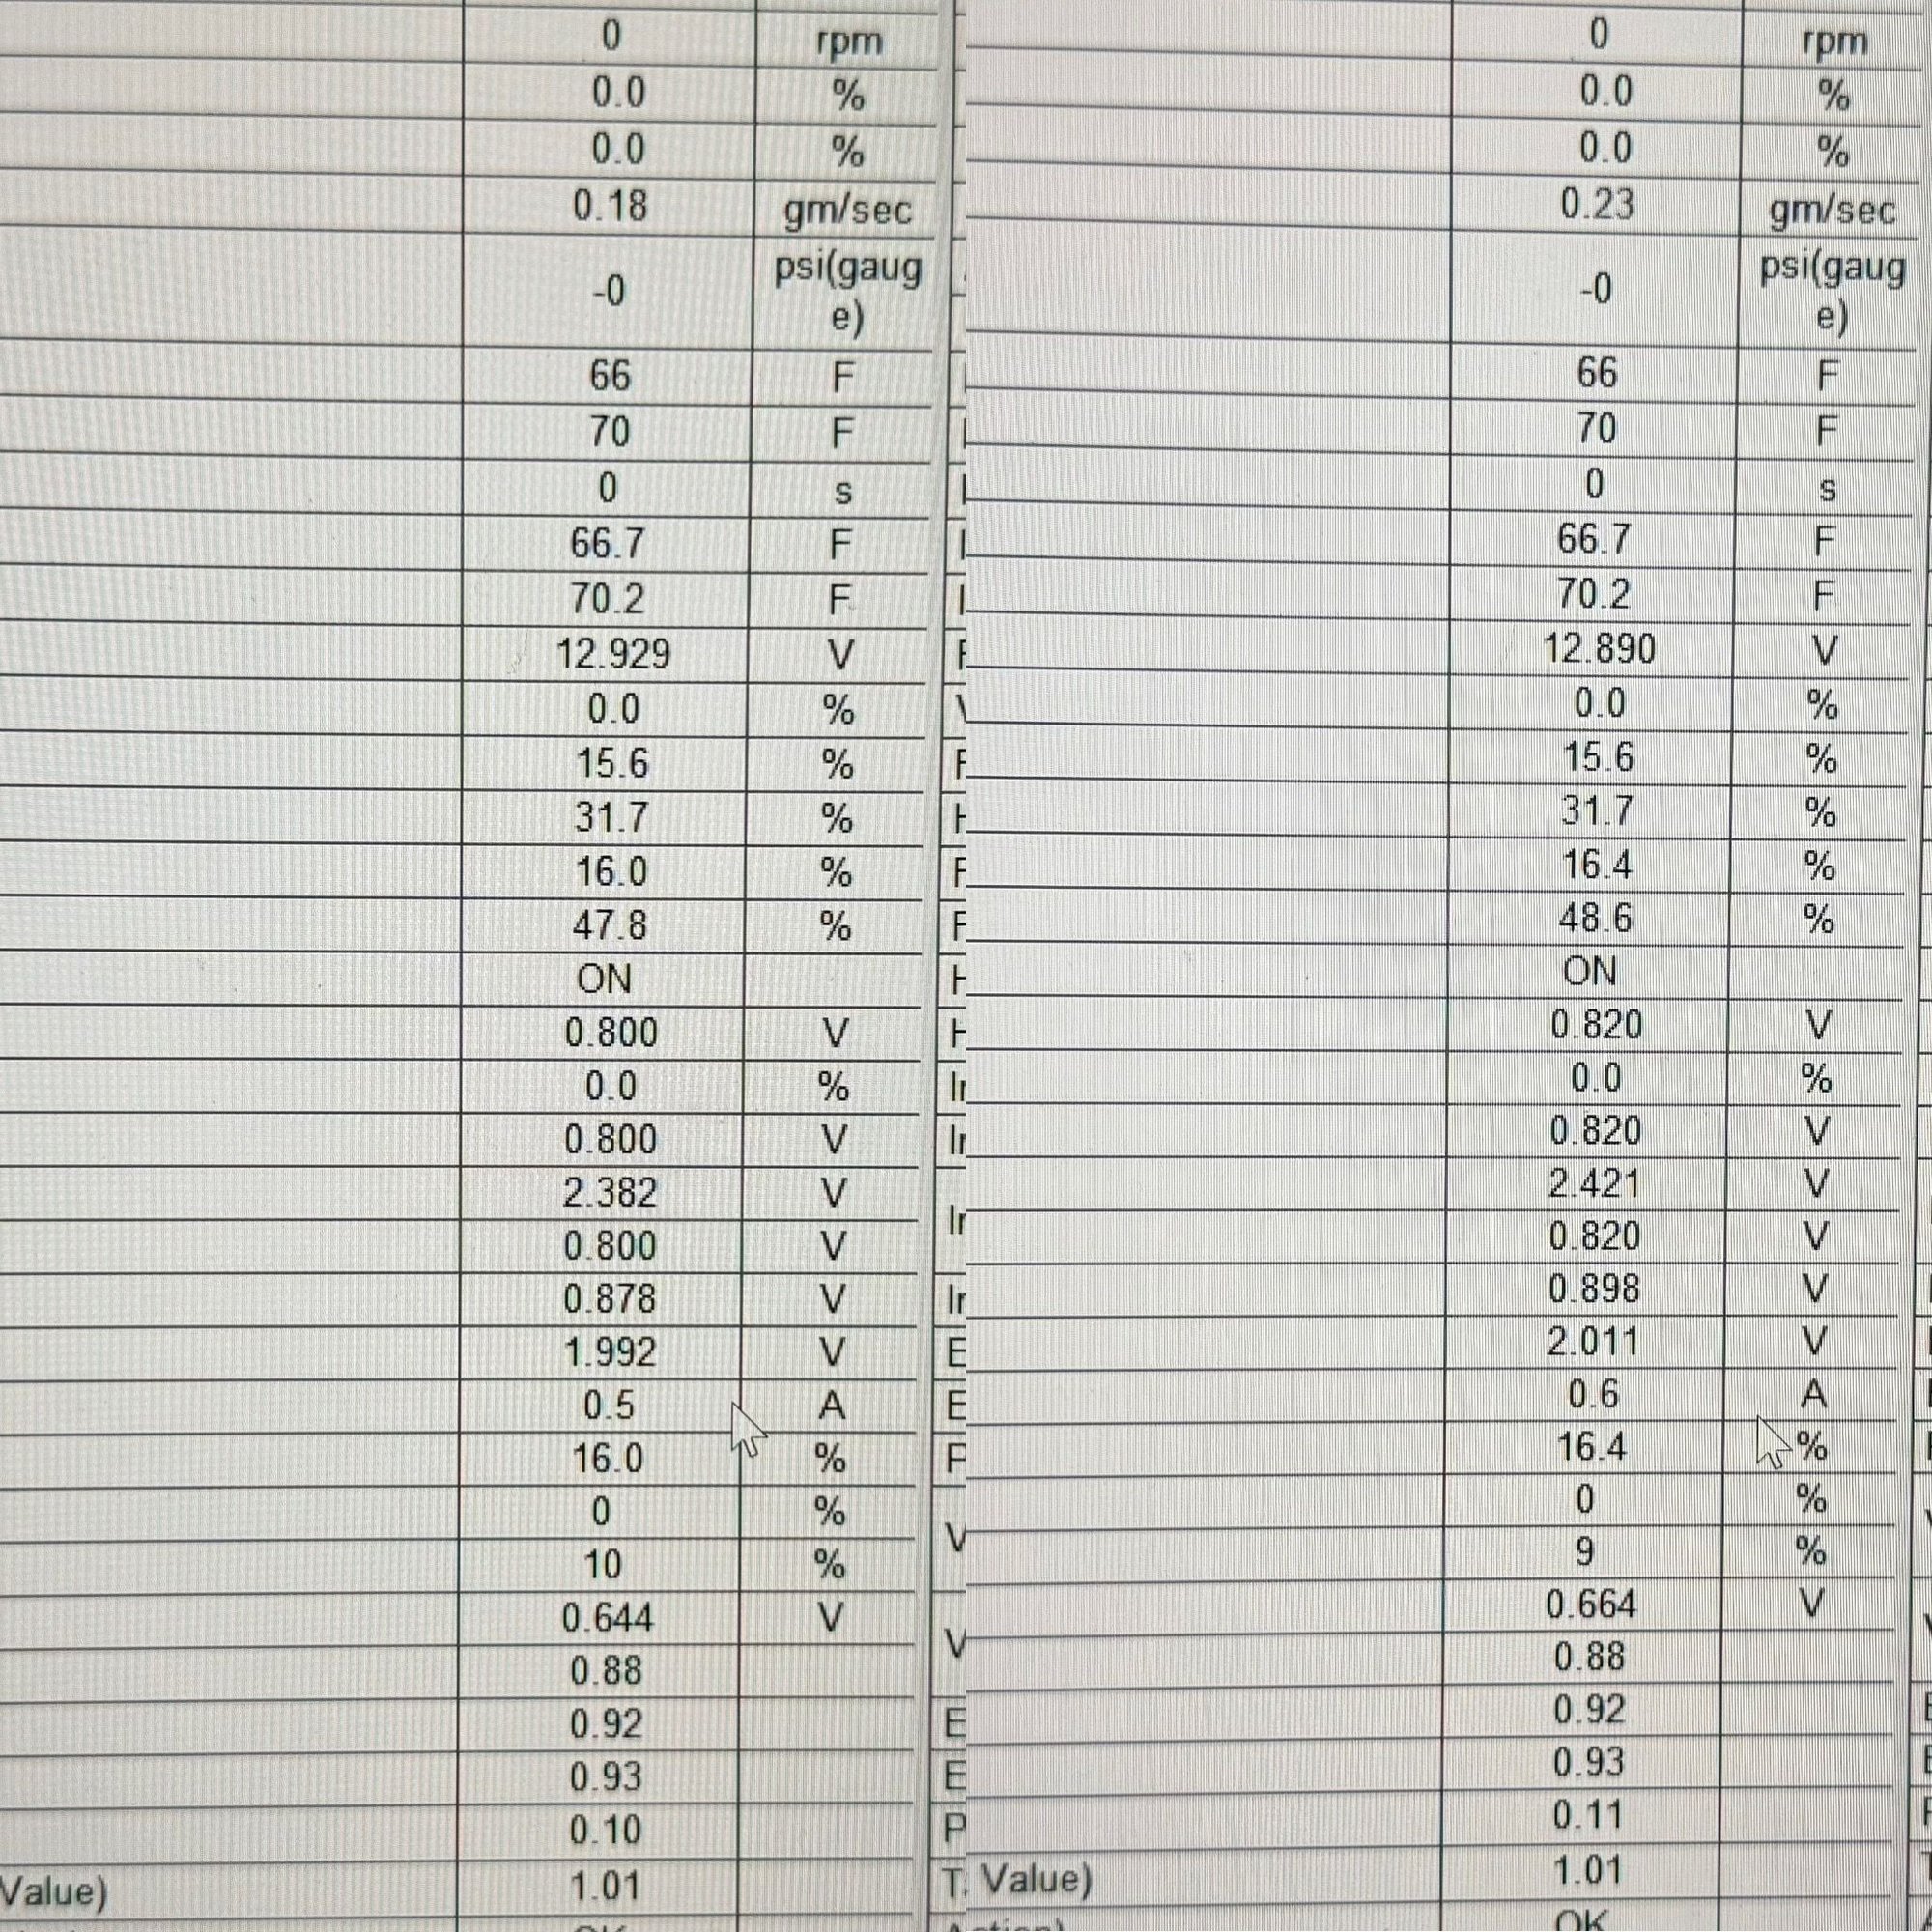 0 rpm
0.0 %
0.0 %
0.18 gm/sec
-0 psi(gaug
e)
66 F
70 F
0 s
66.7 F
70.2 F
12.929 V
0.0 %
15.6 %
31.7 %
16.0 %
47.8 %
ON
0.800 V
0.0 %
0.800 V
2.382 V
0.800 V
0.878 V
1.992 V
0.5 A
16.0 %
0 %
10 %
0.644 V
0.88
0.92
0.93
0.10
Value) 1.01
0 rpm
0.0 %
0.0 %
0.23 gm/sec
-0 psi(gaug
e)
66 F
70 F
0 s
66.7 F
70.2 F
12.890 V
0.0 %
15.6 %
31.7 %
16.4 %
48.6 %
ON
0.820 V
0.0 %
0.820 V
2.421 V
0.820 V
0.898 V
2.011 V
0.6 A
16.4 %
0 %
9 %
0.664 V
0.88
0.92
0.93
0.11
Value) 1.01
OK